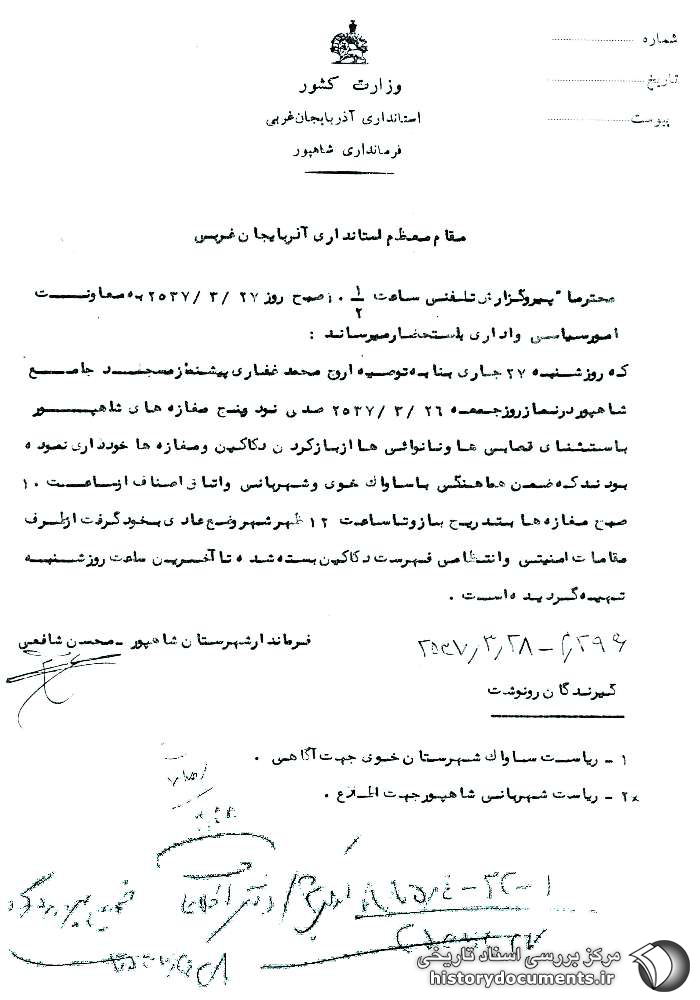 شماره
تاریخ
پیوست
وزارت کشور
استانداری آذربایجان غربی
فرمانداری شاهپور
مقام معظم استانداری آذربایجان غربی
محترما" پیرو گزارش تلفنی ساعت ۱/۲ ۱۰ صبح روز ۲۷/ ۳/ ۲۵۳۷ به معاونت
امور سیاسی و اداری باستحضار میرساند :
که روز شنبه ۲۷ جاری بنا به توصیه اروج محمد غفاری پیشنماز مسجد جامع
شاهپور در نماز روز جمعه ۲۶/ ۳/ ۲۵۳۷ صدی نود و پنج مغازه های شاهپور
باستثنای قصابی ها و نانوائی ها از باز کردن دکاکین و مغازه ها خودداری نموده
بودند که ضمن هماهنگی با ساواک خوی و شهربانی و اتاق اصناف از ساعت ۱۰
صبح مغازه ها بتدریج باز و تا ساعت ۱۲ ظهر شهر وضع عادی بخود گرفت از طرف
مقامات امنیتی و انتظامی فهرست دکاکین بسته شده تا آخرین ساعت روز شنبه
تهیه گردیده است .
فرماندار شهرستان شاهپور - محسن شافعی
۲۵۳۷/۳/۲۸ -
گیرندگان رونوشت
۱ - ریاست ساواک شهرستان خوی جهت آگاهی .
۲ - ریاست شهربانی شاهپور جهت اطلاع .
مرکز بررسی اسناد تاریخی
historydocuments.ir